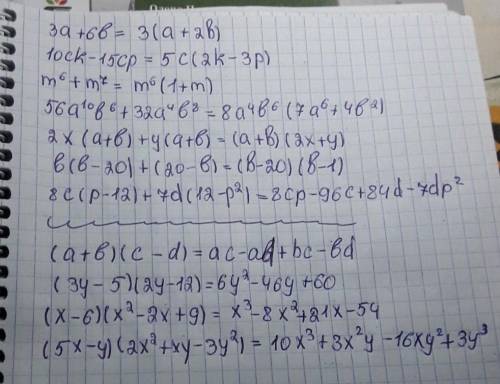 3a+6b = 3(a+2b)
10ck-15cp = 5c(2k-3p)
m⁶+m⁷ = m⁶(1+m)
56a¹⁰b⁶+32a⁴b⁸=8a⁴b⁶(7a⁶+4b²)
2x(a+b)+y(a+b)=(a+b)(2x+y)
b(b-20)+(20-b)=(b-20)(b-1)
8c(p-12)+7d(12-p²)=8cp-96c+84d-7dp²
(a+b)(c-d)=ac-ad+bc-bd
(3y-5)(2y-12)=6y²-46y+60
(x-6)(x²-2x+9)=x³-8x²+21x-54
(5x-y)(2x²+xy-3y²)=10x³+3x²y-16xy²+3y³